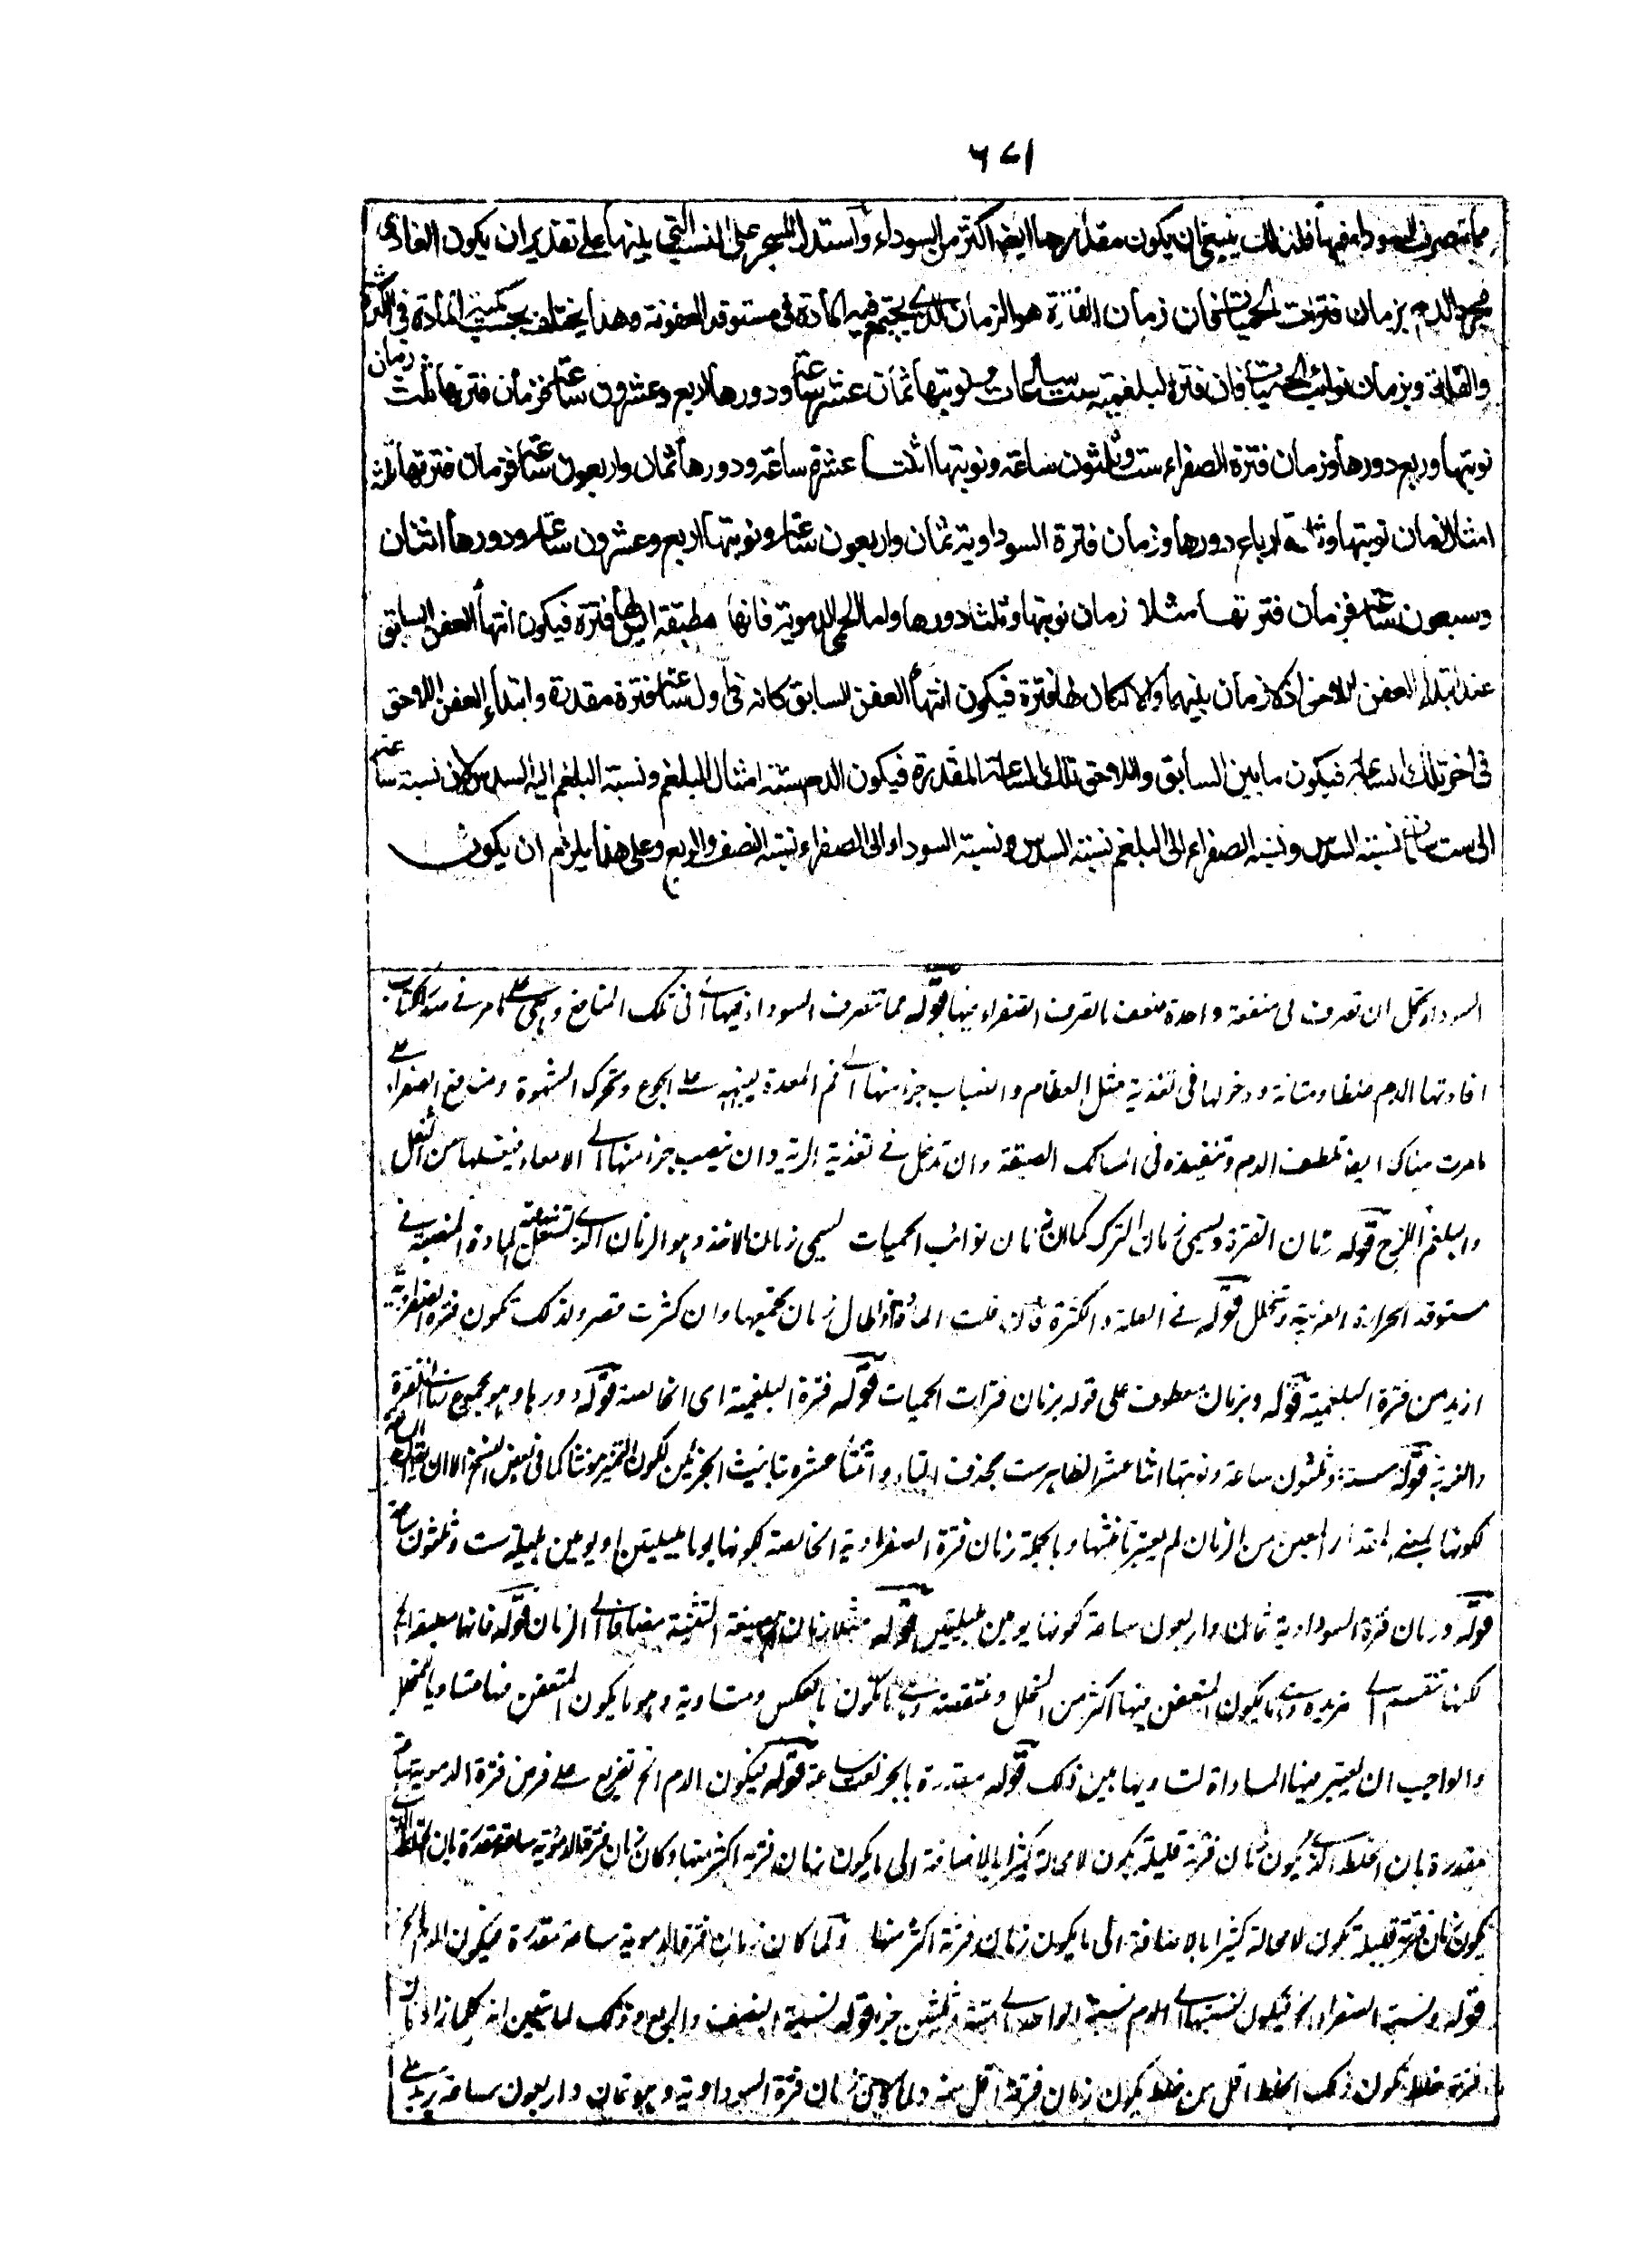 ٦٧١
مما تتصرف السوداء فيها فلذلك ينبغى ان يكون مقدارها ايضا اكثر من السوداء واستدل المسيحى على النسب التى بينها على تقدير ان يكون الغاذى
الدم بزمان فترات الحميات فان زمان الفترة هو الزمان الذى يجتمع فيه المادة فى مستوقد العفونة وهذا يختلف بحسب المادة فى الكثرة
والقلة وبزمان نوائب الحميات فان فترة البلغمية ست ساعات ونوبتها ثمان عشرة ساعة ودورها اربع وعشرون ساعة فزمان فترتها ثلث زمان
نوبتها وربع دورها وزمان فترة الصفراء ست وثلثون ساعة ونوبتها اثنتا عشرة ساعة ودورها ثمان واربعون ساعة فزمان فترتها ثلثة
امثال زمان نوبتها وثلثة ارباع دورها وزمان فترة السوداوية ثمان واربعون ساعة ونوبتها اربع وعشرون ساعة ودورها اثنتان
وسبعون ساعة فزمان فترتها مثلا زمان نوبتها وثلثا دورها واما الحمى الدموية فانها مطبقة ليس لها فترة فيكون انتهاء العفن السابق
عند ابتداء العفن اللاحق اذ لا زمان بينهما والا لكان لها فترة فيكون انتهاء العفن السابق كانه فى اول ساعة فترة مقدرة وابتداء العفن اللاحق
فى اخر تلك الساعة فيكون ما بين السابق واللاحق تلك الساعة المقدرة فيكون الدم ستة امثال البلغم ونسبة البلغم اليه السدس لان نسبة ساعة
الى ست ساعات نسبة السدس ونسبة الصفراء الى البلغم نسبة السدس ونسبة السوداء الى الصفراء نسبة النصف والربع وعلى هذا يلزم ان يكون
السوداء ان تصرف فى منفعة واحدة ضعف ما تصرف الصفراء فيها قوله مما تتصرف السوداء فيها اى فى تلك المنافع وهى على ما مر فى
افادتها الدم غلظا ومتانة ودخولها فى تغذية مثل العظام وانصباب جزء منها الى فم المعدة لينبهه على الجوع وتحرك الشهوة ومنافع الصفراء على
ما مرت هناك ايضا تلطيف الدم وتنفيذه فى المسالك الضيقة وان تدخل فى تغذية الرية وان ينصب جزء منها الى الامعاء فيغسلها من الثفل
والبلغم اللزج قوله زمان الفترة ويسمى زمان الترك كما ان زمان نوائب الحميات يسمى زمان الاخذ وهو الزمان الذى تشتعل فيه المادة المنصبة فى
مستوقد الحرارة الغريبة وتتحلل قوله فى القلة والكثرة فان قلت المادة طال زمان تجمعها وان كثرت قصر ولذلك تكون فترة الصفراوية
ازيد من فترة البلغمية قوله وبزمان معطوف على قوله بزمان فترات الحميات قوله فترة البلغمية اى الخالصة قوله دورها وهو مجموع زمان الفترة
والنوبة قوله ستة وثلثون ساعة ونوبتها اثنا عشر الظاهر ست بحذف التاء واثنتا عشرة بتانيث الجزئين لكون التميز مونثا كما فى بعض النسخ الا ان يقال الساعة
لكونها بمعنى مقدار معين من الزمان لم يعتبر تانيثها وبالجملة زمان فترة الصفراوية الخالصة لكونها يوما بليلتين او يومين بليلة ست وثلثون ساعة
قوله وزمان فترة السوداوية ثمان واربعون ساعة لكونها يومين بليلتين قوله مثلا زمان بصيغة التثنية مضافا الى الزمان قوله فانها مطبقة الخ
لكنها تنقسم الى متزيدة وهى ما يكون المتعفن فيها اكثر من المتحلل ومتنقصة وهى ما يكون بالعكس ومتساوية وهو ما يكون المتعفن منها متساويا للمتحلل
والواجب ان يعتبر منها المساواة لتساويها بين ذلك قوله مقدرة بالجر نعت ساعة قوله فيكون الدم الخ تفريع على فرض فترة الدموية ساعة
مقدرة بان الخلط الذى يكون زمان فترته قليلة يكون لا محالة كثيرا بالاضافة الى ما يكون زمان فترته اكثر منها وكان زمان فترة الدموية ساعة مقدرة بان الخلط الذى
يكون زمان فترته قليلة يكون لا محالة كثيرا بالاضافة الى ما يكون زمان فترته اكثر منها ولما كان زمان فترة الدموية ساعة مقدرة فيكون الدم الخ
قوله ونسبة الصفراء الخ فيكون نسبتها الى الدم نسبة الواحد الى ستة وثلثين جزء قوله نسبة النصف والربع وذلك لما تبين انه كلما زاد زمان
فترة خلط يكون ذلك الخلط اقل من خلط يكون زمان فترته اقل منه ولما كان زمان فترة السوداوية وهو ثمان واربعون ساعة يزيد على